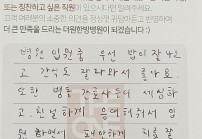 또는 칭찬하고 싶은 직원이 있으시다면 알려주세요.
고객 여러분의 소중한 의견을 정성껏 귀담아듣고 반영하여
더 큰 만족을 드리는 더원한방병원이 되겠습니다 :)
병원 입원중 우선 밥이 잘 나오
고 간식도 잘 나와서 좋아요.
또한 병동 간호사들이 세심하
고, 친절하게 응대해줘서 입
원